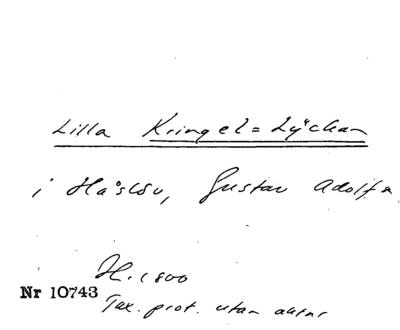 Lilla Kringel=Lyckan
i Håslöv, Gustav Adolfs
H. 1800
Nr 10743
Tax. prot. utan